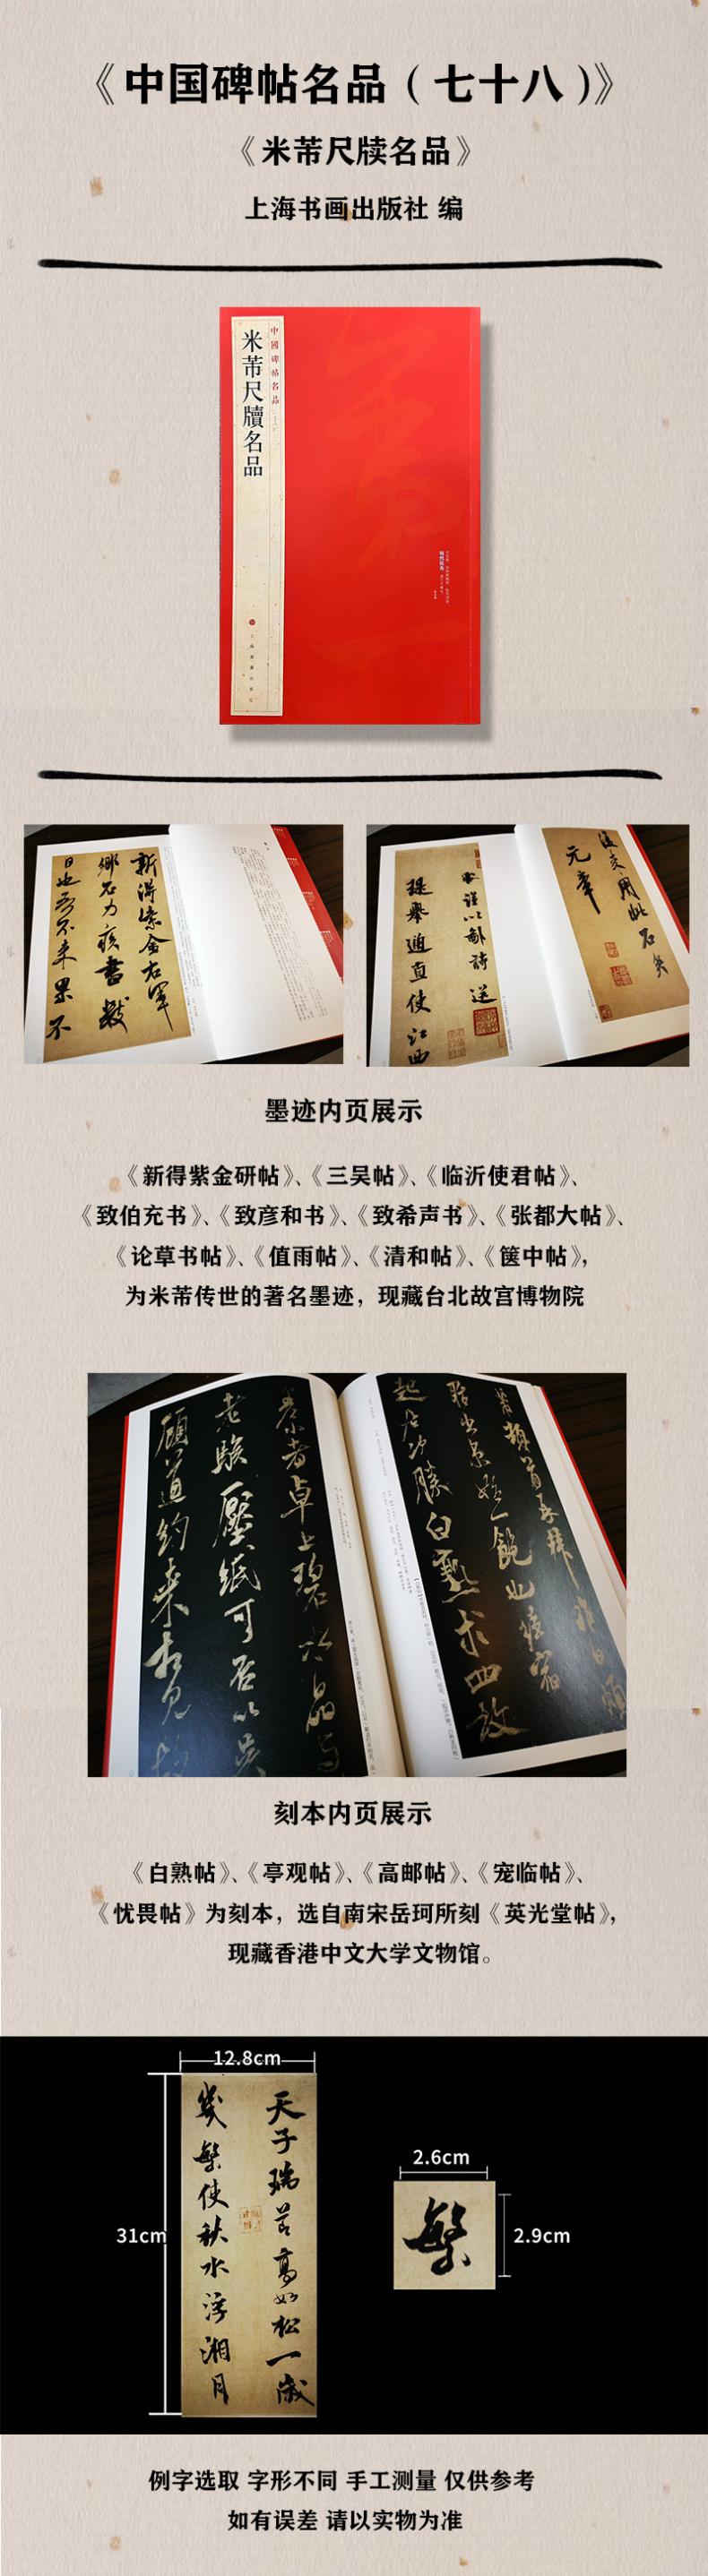 《中国碑帖名品(七十八)》
《米芾尺牍名品》
上海书画出版社 编
中國碑帖名品
米芾尺牘名品
新得紫金右軍
鄉石力疾書數
日也吾不來果不
後交用此石矣
元章
謹以鄙詩送
提舉通直使江西
墨迹内页展示
《新得紫金研帖》、《三吴帖》、《临沂使君帖》、
《致伯充书》、《致彦和书》、《致希声书》、《张都大帖》、
《论草书帖》、《值雨帖》、《清和帖》、《箧中帖》,
为米芾传世的著名墨迹，现藏台北故宫博物院
老驗壓紙可否以
顧道約來相見
起居沖勝白熟求四故
刻本内页展示
《白熟帖》、《亭观帖》、《高邮帖》、《宠临帖》、
《忧畏帖》为刻本，选自南宋岳珂所刻《英光堂帖》,
现藏香港中文大学文物馆。
12.8cm
31cm
天子瑞苕高如松一歲
幾繁使秋水浮湘月
2.6cm
繁
2.9cm
例字选取 字形不同 手工测量 仅供参考
如有误差 请以实物为准